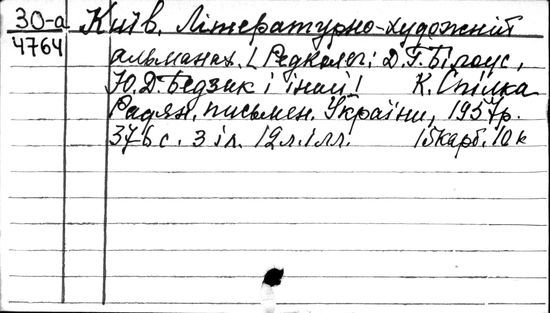 30-а Київ. Літературно-художній
4764 альманах. (Редколег.: Д.Г. Білоус,
Ю.Д. Бедзик і інші) К. Спілка
Радян. письмен. України, 1957р.
376 с. 3 іл. 12 л. ілл. 15 карб. 10 к